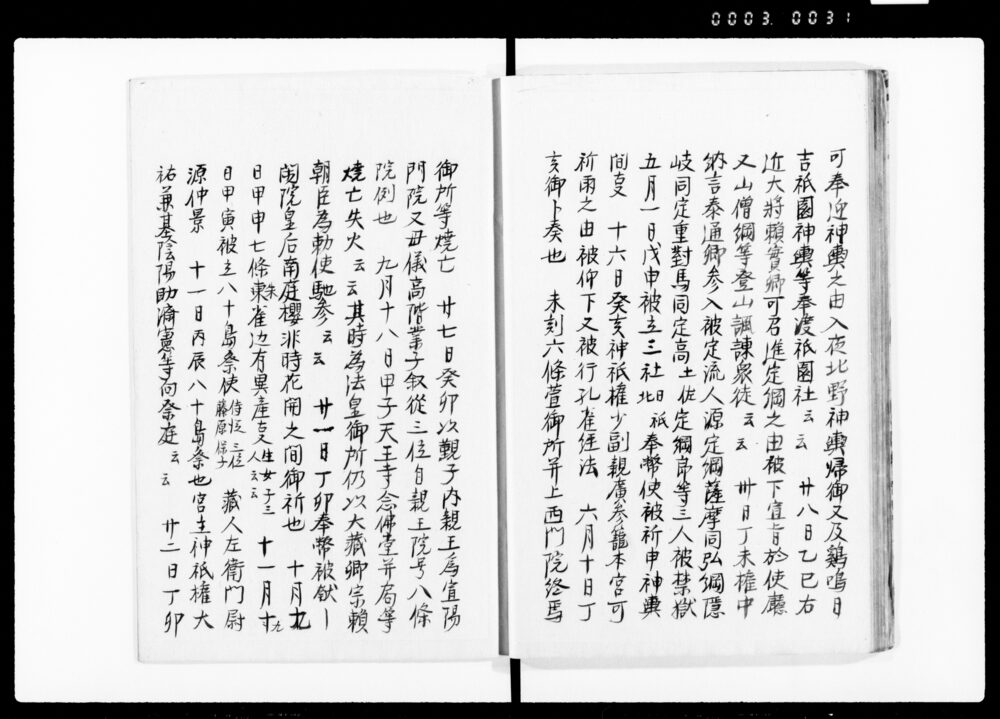 0003. 0031
可奉迎神輿之由入夜北野神輿帰御又及鷄鳴日
吉祇園神輿等奉渡祇園社云云　廿八日乙巳右
近大將賴實卿可召進定綱之由被下宣旨於使廳
又山僧綱等登山諷諫衆徒云云　卅日丁未權中
納言泰通卿参入被定流人源定綱薩摩同弘綱隠
岐同定重對馬同定高土佐定綱郎等三人被禁獄
五月一日戊申被立三社日祇北奉幣使被祈申神輿
間叓　十六日癸亥神祇權少副親廣参籠本宮可
祈雨之由被仰下又被行孔雀経法　六月十日丁
亥御卜奏也　未刻六條萱御所并上西門院終焉
御所等燒亡　廿七日癸卯以觀子内親王爲宜陽
門院又母儀高階業子叙從三位自親王院号八條
院例也　九月十八日甲子天王寺念佛堂并局等
燒亡失火云云其時為法皇御所仍以大藏卿宗頼
朝臣為勅使馳参云云　廿一日丁卯奉幣被獻｜
閑院皇后南庭櫻非時花開之間御祈也　十月九
日甲申七條東朱雀辺有異產叓生女子三人云云　十一月十九
日甲寅被立八十島祭使侍従三位藤原保子　藏人左衛門尉
源仲景　十一日丙辰八十島祭也宮主神祇權大
祐兼基陰陽助濟憲等向祭庭云云　廿二日丁卯